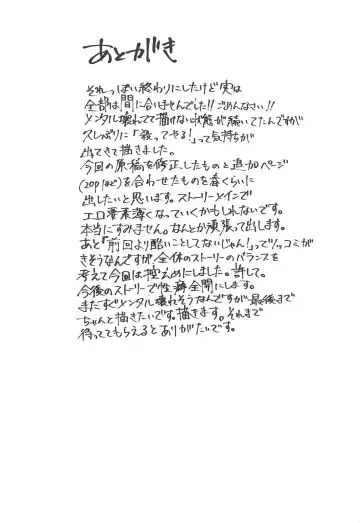 あとがき
それっぽい終わりにしたけど実は
全部は間に合いませんでした!!ごめんなさい!!
メンタル壊れてて描けない状態が続いてたんですが
久しぶりに「殺ってやる!」って気持ちが
出てきて描きました。
今回の原稿を修正したものと追加ページ
(20pほど)を合わせたものを春くらいに
出したいと思います。ストーリーメインで
エロ要素薄くなっていくかもしれないです。
本当にすみません。なんとか頑張って出します。
あと「前回より酷いことしてないじゃん!」ってツッコミが
きそうなんですが、全体のストーリーのバランスを
考えて今回は控えめにしました。許して。
今後のストーリーで性癖全開にします。
まだすぐメンタル壊れそうなんですが最後まで
ちゃんと描きたいです。描きます。それまで
待っててもらえるとありがたいです。